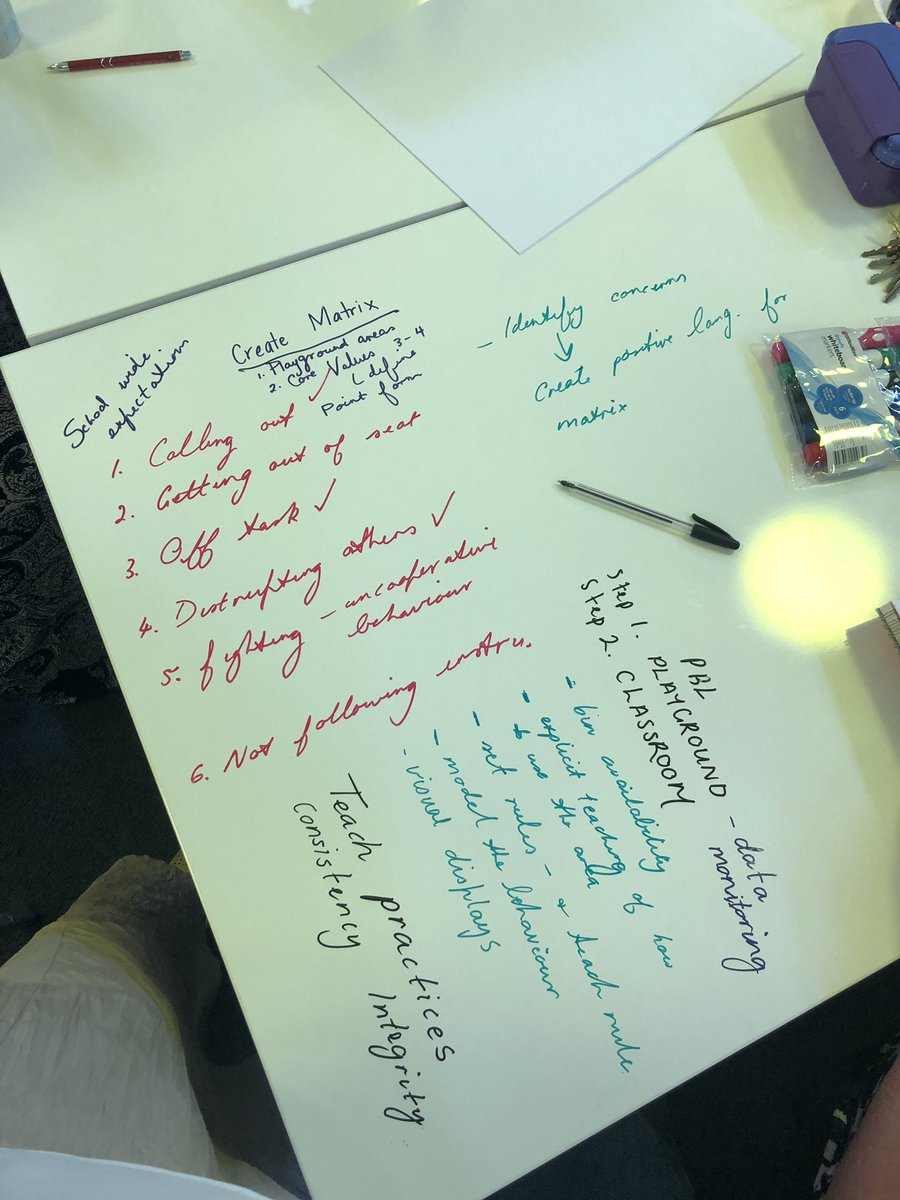 School wide
expectations
Create Matrix
1. Playground areas
2. Core Values 3-4
define
Point form
1. Calling out ✓
2. Getting out of seat
3. Off task ✓
4. Distrupting others ✓
5. fighting - uncooperative
behaviour
6. Not following instru.
- Identify concerns
↓
Create positive lang. for
matrix
PBL
Step 1. PLAYGROUND
Step 2. CLASSROOM
- data
monitoring
- bin availability
- explicit teaching of how
to use the area
- set rules - & teach rule.
- model the behaviour
- visual displays
Teach practices
consistency Integrity
whiteboard
markers
6